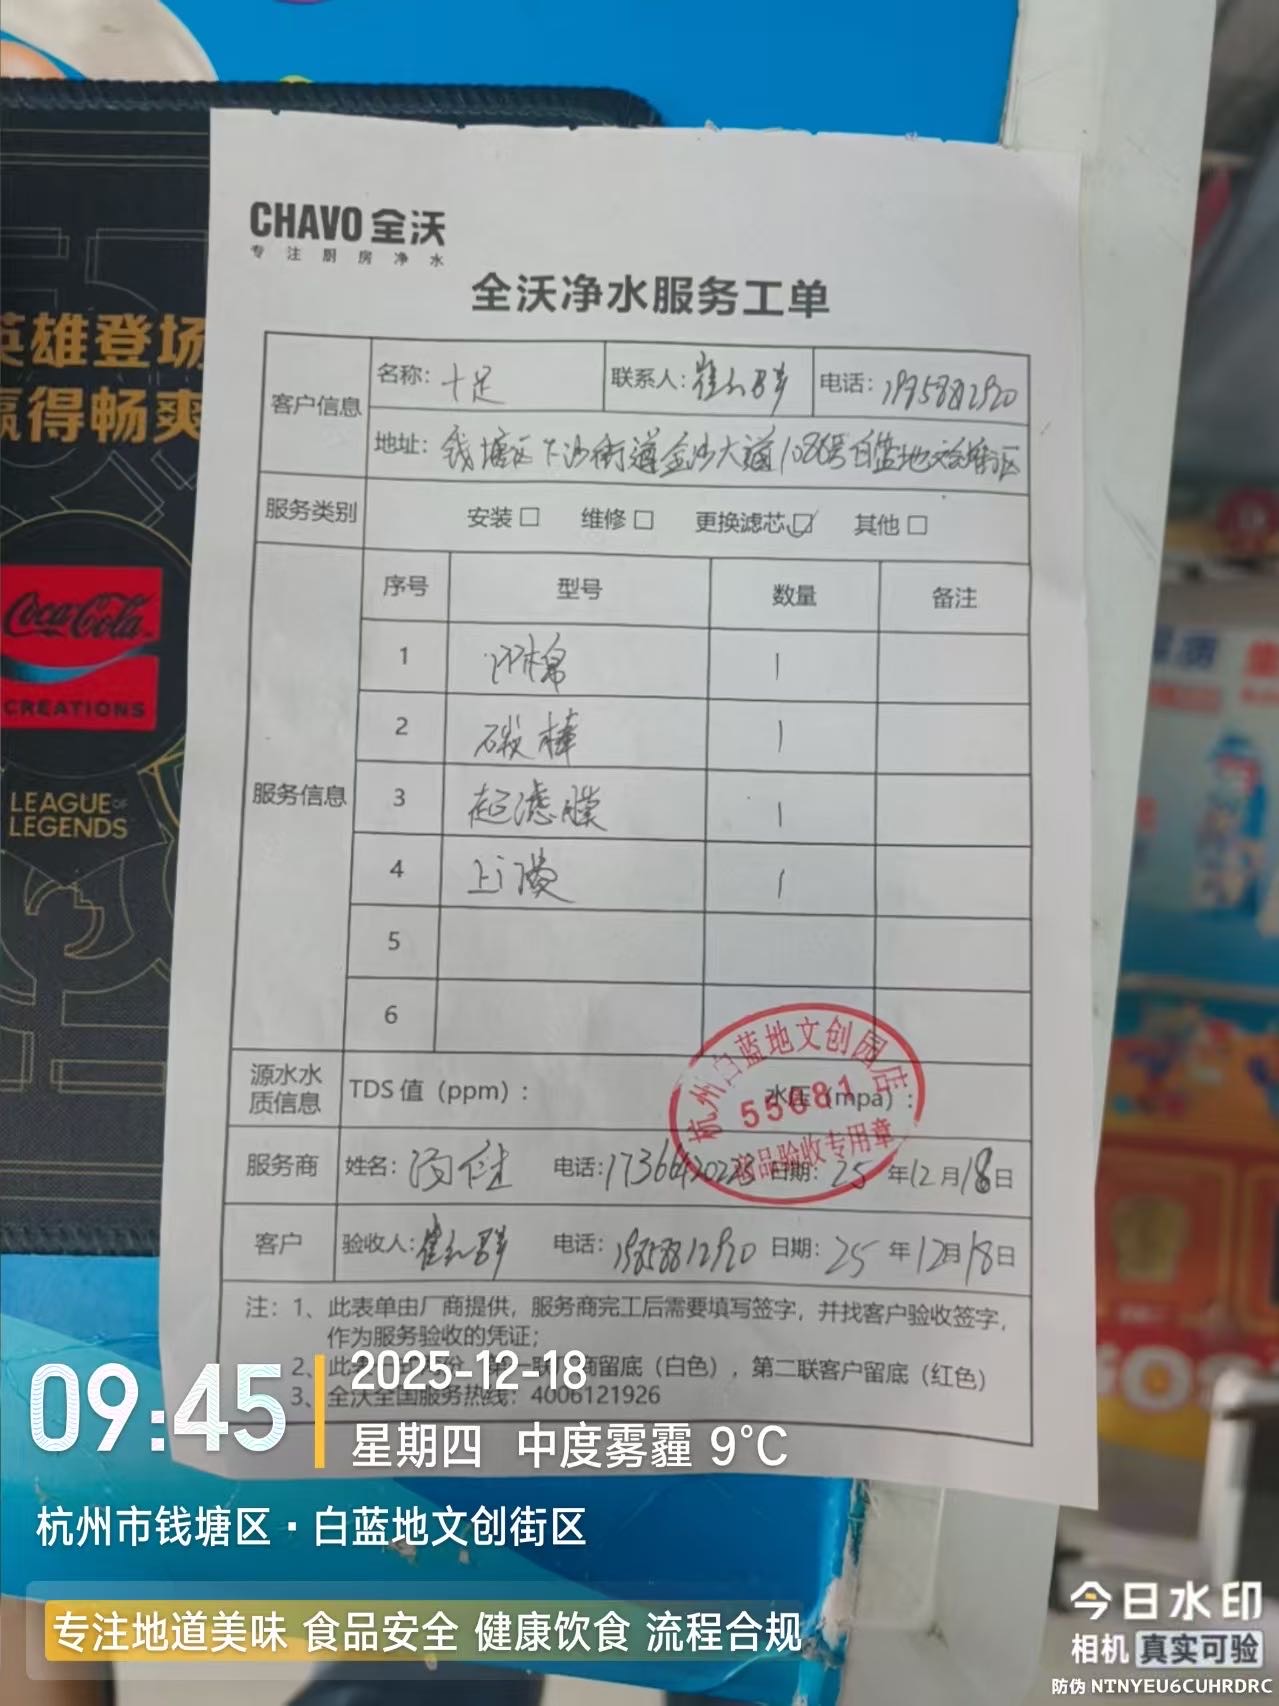 英雄登场
赢得畅爽
Coca-Cola
CREATIONS
LEAGUE OF
LEGENDS
CHAVO 全沃
专注厨房净水
全沃净水服务工单
客户信息 名称: 十足 联系人: 电话:
地址: 钱塘区下沙街道金沙大道1086号白蓝地文创街区
服务类别 安装□ 维修□ 更换滤芯☑ 其他□
服务信息
序号 型号 数量 备注
1 PP棉 1
2 碳棒 1
3 超滤膜 1
4 上门费 1
5
6
源水水质信息 TDS 值（ppm）: 水压（mpa）:
杭州白蓝地文创园店
55681
商品验收专用章
服务商 姓名: 电话: 17366420223 日期: 25年12月18日
客户 验收人: 电话: 日期: 25年12月18日
注: 1、此表单由厂商提供，服务商完工后需要填写签字，并找客户验收签字，
作为服务验收的凭证;
2、此 商留底（白色），第二联客户留底（红色）
3、全沃全国服务热线: 4006121926
09:45
2025-12-18
星期四 中度雾霾 9°C
杭州市钱塘区·白蓝地文创街区
专注地道美味 食品安全 健康饮食 流程合规
今日水印
相机 真实可验
防伪 NTNYEU6CUHRDRC